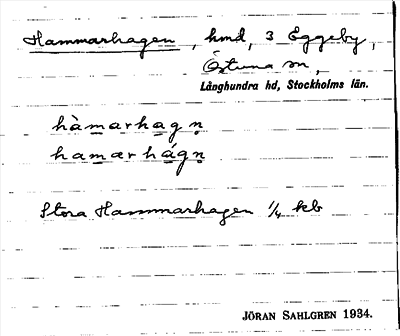 Hammarhagen, hmd, 3 Eggeby,
Östuna sn,
Långhundra hd, Stockholms län.
hàmarhagn̥
hamarhágn̥
Stora Hammarhagen 1/4 kb
JÖRAN SAHLGREN 1934.